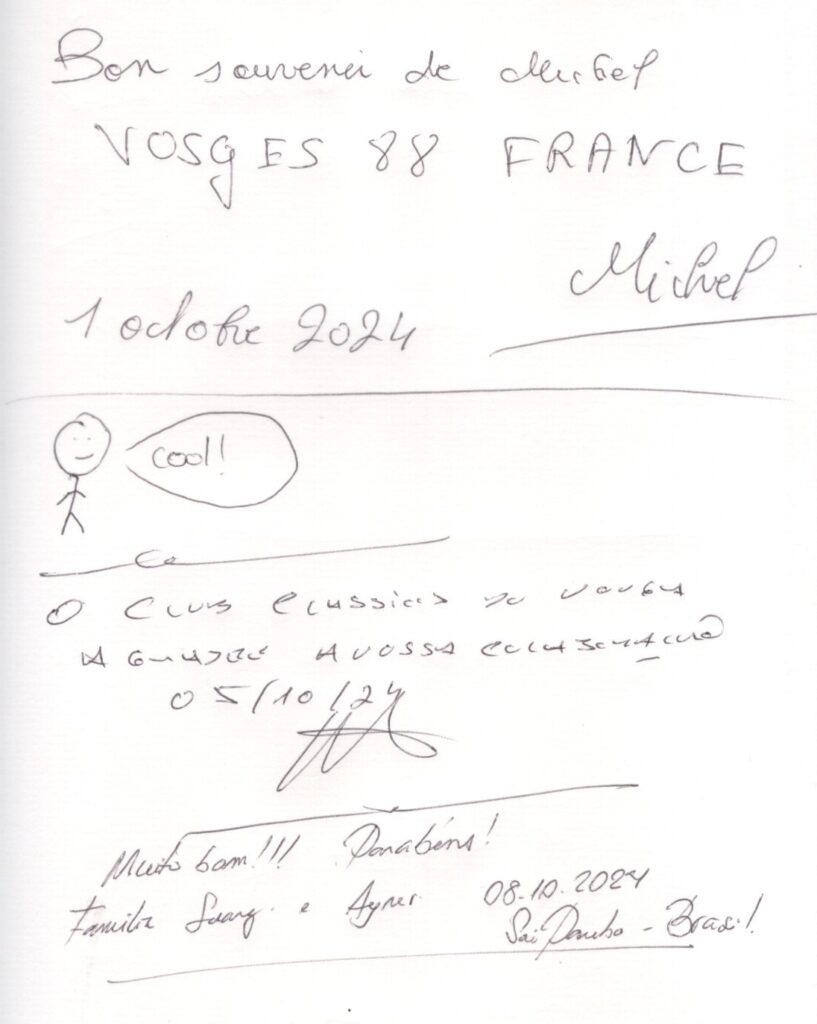 Bon souvenir de Michel
VOSGES 88 FRANCE
Michel
1 octobre 2024
cool!
O CLUB CLASSICOS DO VOUGA
AGRADECE A VOSSA COLABORAÇÃO
05/10/24
Muito bom!!! Parabéns!
Familia e 08.10.2024
São Paulo - Brasil